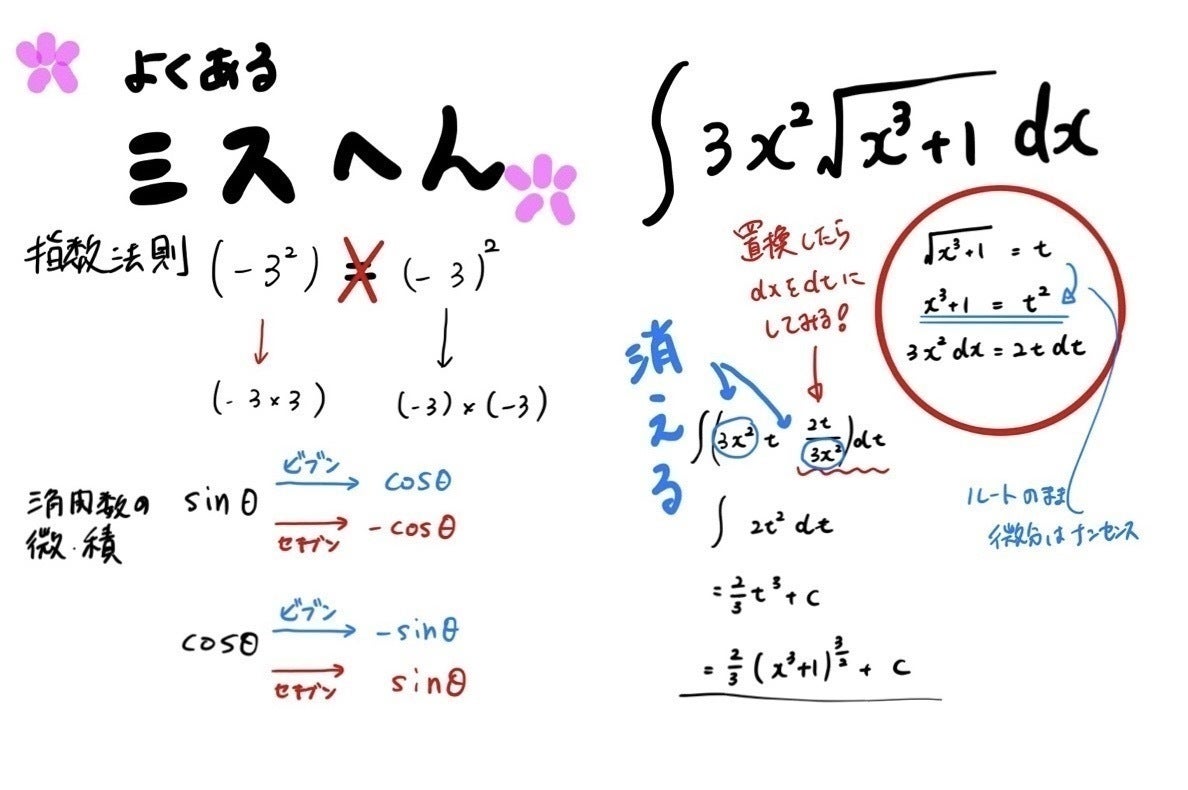 よくある
ミスへん
指数法則 (-3²) ≠ (-3)²
(-3×3) (-3)×(-3)
三角関数の
微・積
sinθ ビブン → cosθ
セキブン → -cosθ
cosθ ビブン → -sinθ
セキブン → sinθ
∫3x²√(x³+1) dx
置換したら
dxをdtに
してみる!
√(x³+1) = t
x³+1 = t²
3x²dx = 2t dt
ルートのまま
微分はナンセンス
消える
∫(3x² t 2t/3x²)dt
∫ 2t² dt
= 2/3 t³ + C
= 2/3 (x³+1)^(3/2) + C